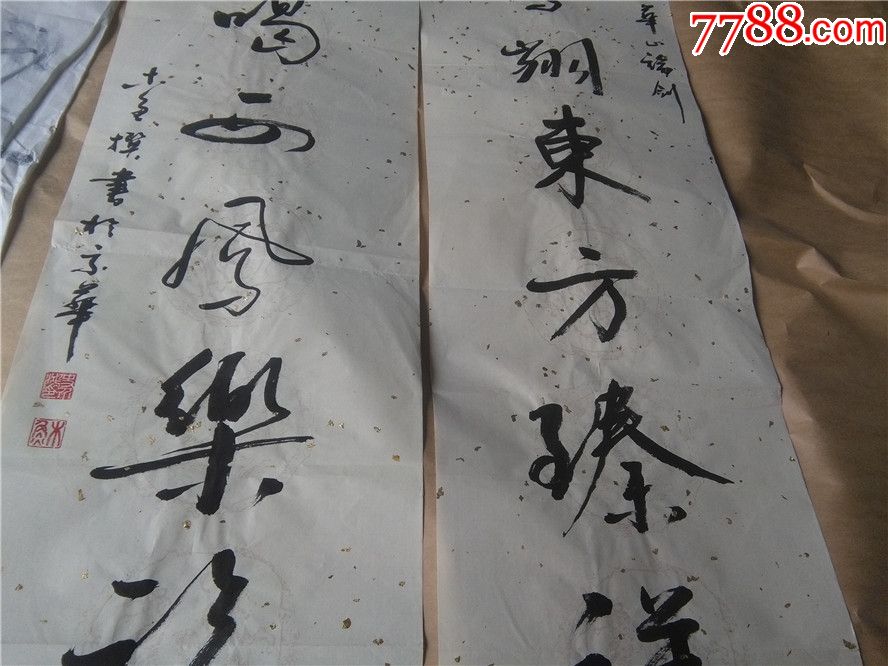 7788.com
華山論劍
翔東方臻祥
喝西鳳樂
撰書於京華